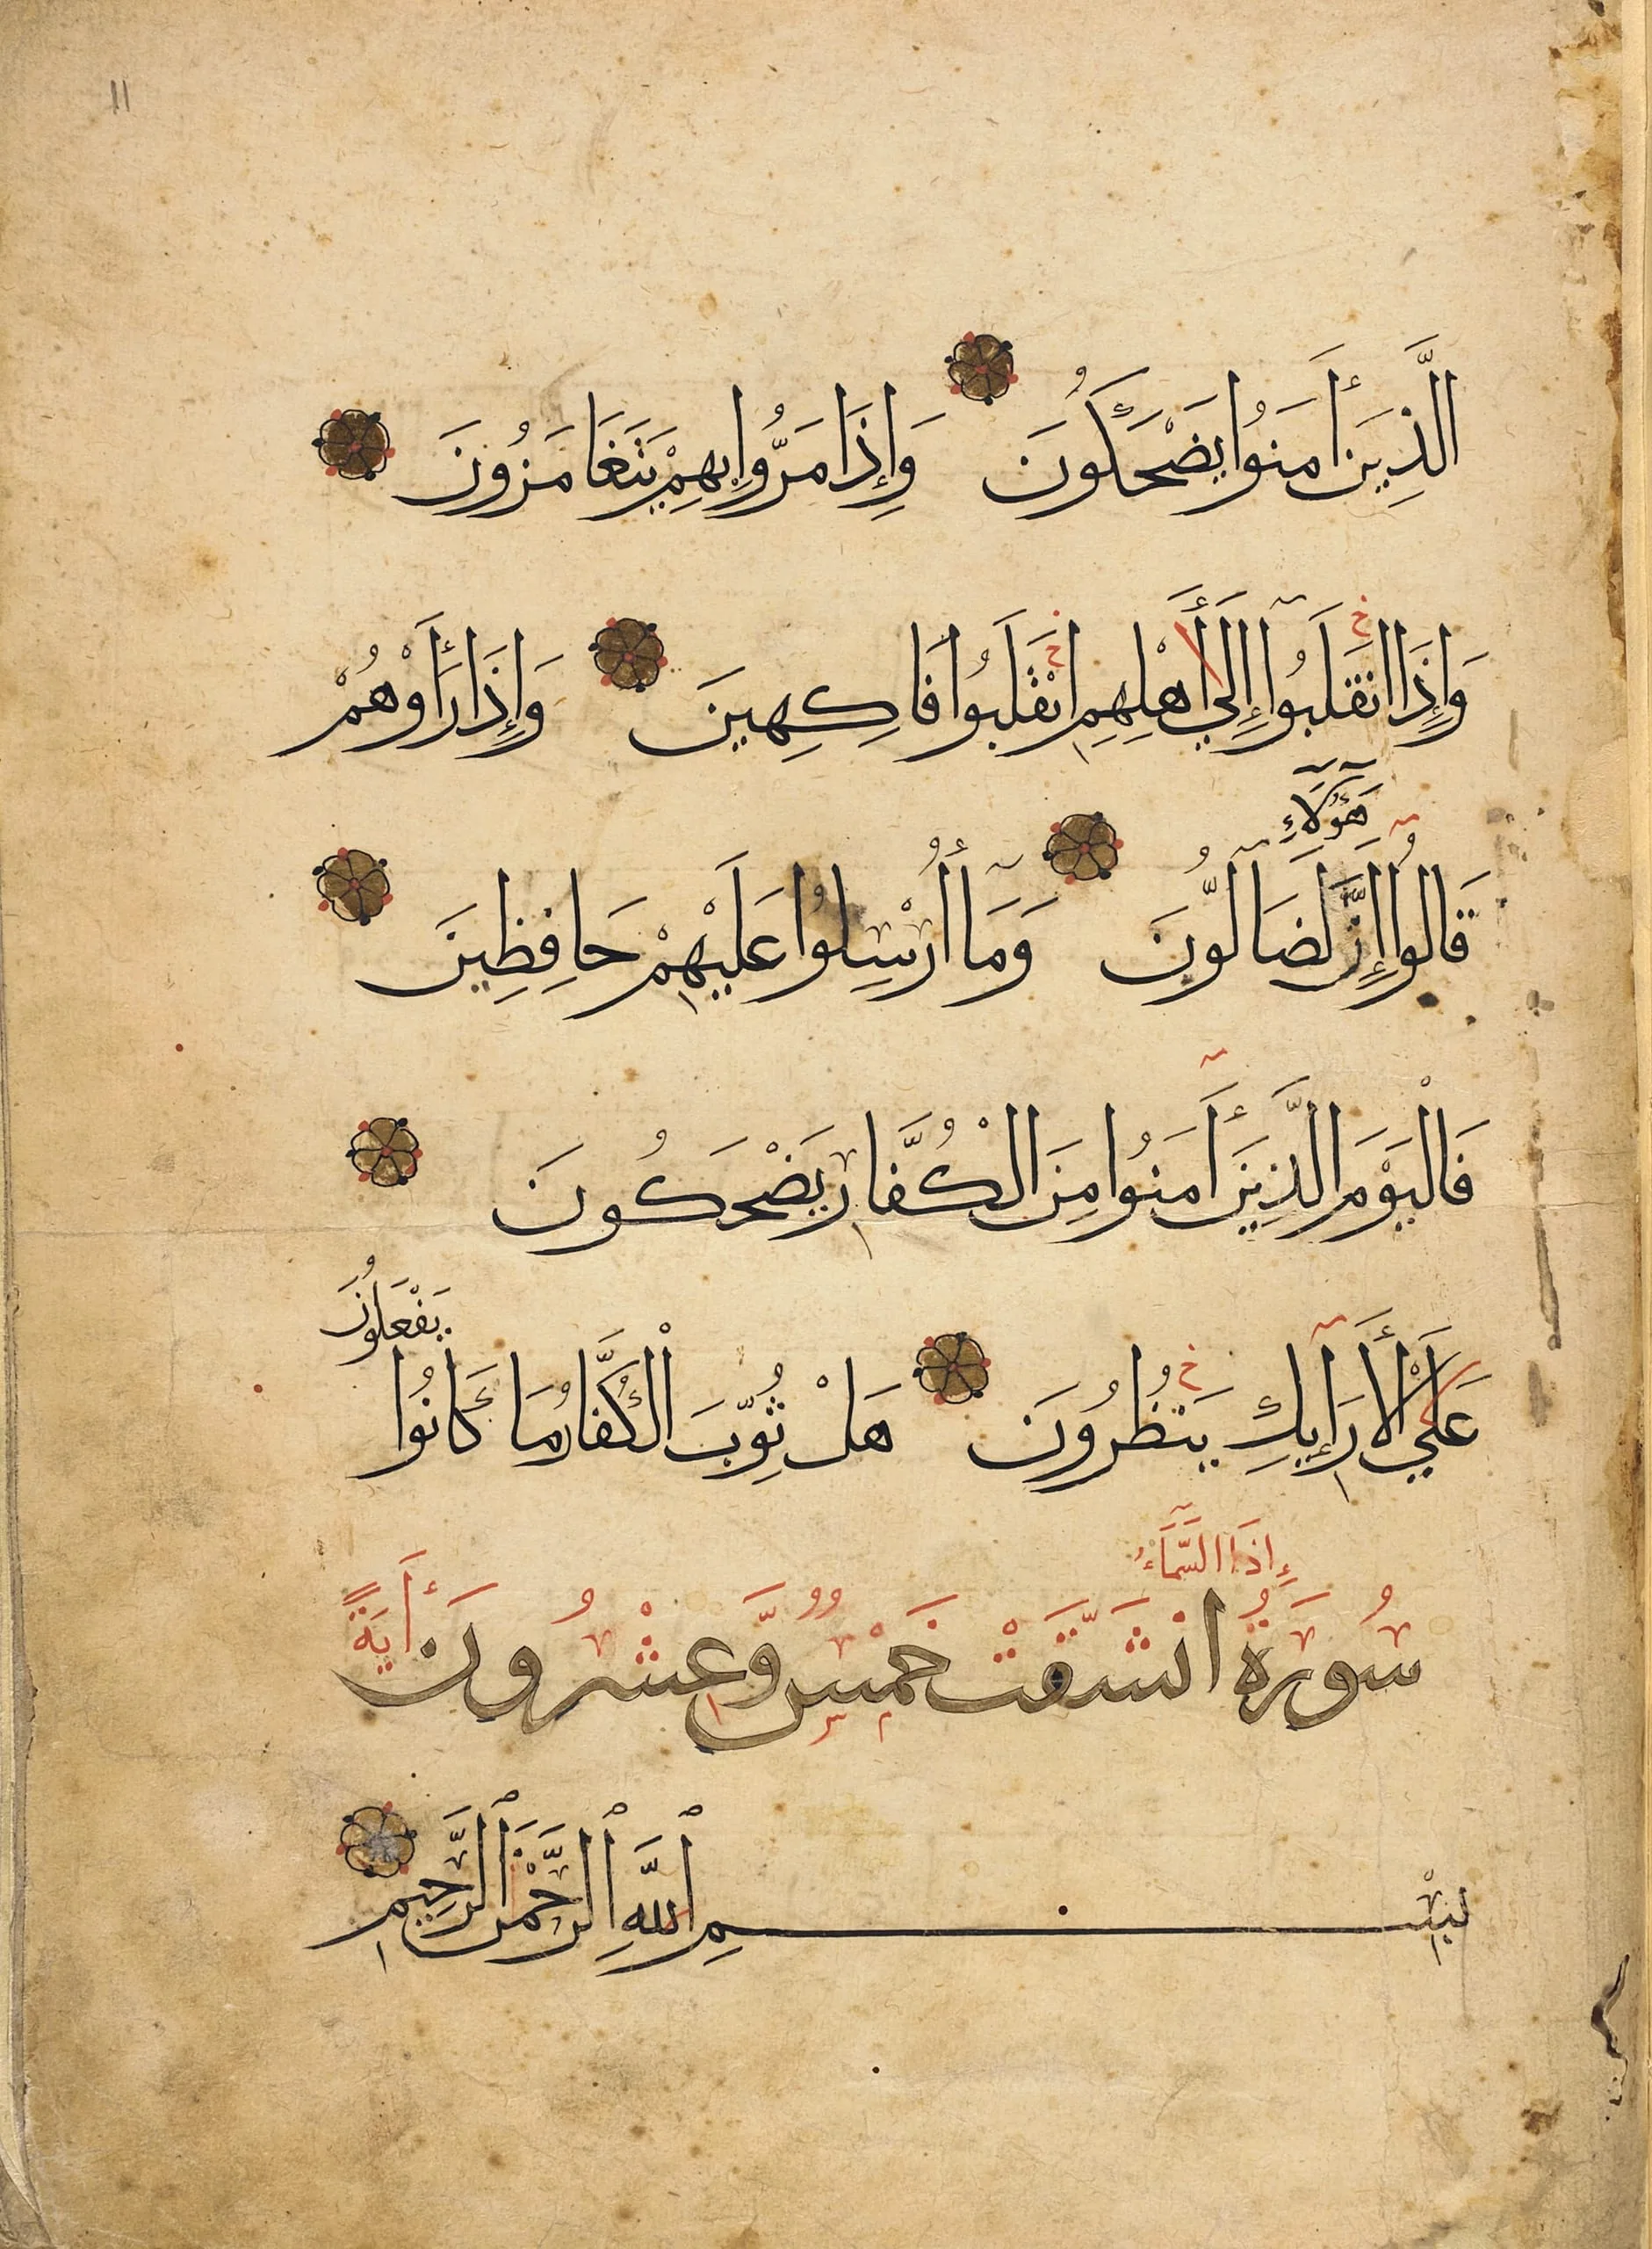 اا
الَّذِينَ أَمَنُوا يَضْحَكُونَ وَإِذَا مَرُّوا بِهِمْ يَتَغَامَزُونَ
وَإِذَا انقَلَبُوا إِلَي أَهْلِهِمِ انْقَلَبُوا فَاكِهِينَ وَإِذَا رَأَوْهُمْ
هَؤُلَآءِ
قَالُوا إِنَّ لَضَآلُّونَ وَمَآ أُرْسِلُوا عَلَيْهِمْ حَافِظِينَ
فَالْيَوْمَ الَّذِينَ أَمَنُوا مِنَ الْكُفَّارِ يَضْحَكُونَ
يَفْعَلُونَ
عَلَي الْأَرَآيِكِ يَنظُرُونَ هَلْ ثُوِّبَ الْكُفَّارُ مَا كَانُوا
إِذَا السَّمَآءُ
سُورَةُ انْشَقَّتْ خَمْسٌ وَّعِشْرُونَ أَيَةً
بِسْمِ اللَّهِ الرَّحْمَنِ الرَّحِيمِ